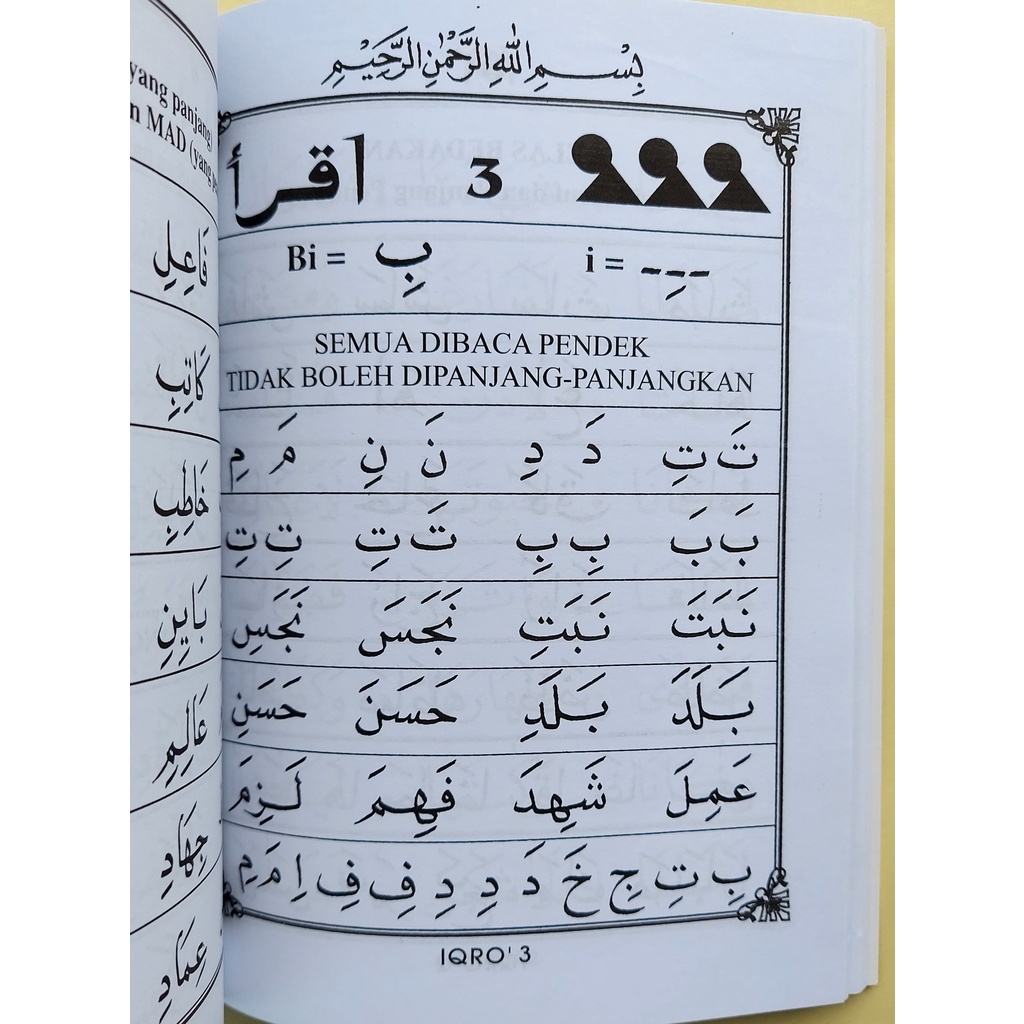 yang panjang)
MAD (yang
فَاعِلِ
كَاتِبِ
خَاطِبِ
بَايِنِ
عَالِمِ
جِهَادِ
عِمَادِ
بِسْمِ اللهِ الرَّحْمٰنِ الرَّحِيْمِ
اقرأ 3
Bi = بِ i = ـِ
SEMUA DIBACA PENDEK
TIDAK BOLEH DIPANJANG-PANJANGKAN
تَ تِ دَ دِ نَ نِ مَ مِ
بَ بَ بِ بِ تَ تِ تِ تِ
نَبَتَ نَبَتِ نَجَسَ نَجَسِ
بَلَدَ بَلَدِ حَسَنَ حَسَنِ
عَمِلَ شَهِدَ فَهِمَ لَزِمَ
بِ تِ جِ خَ دَ دِ دِ فِ فِ اِ مَ مِ
IQRO' 3